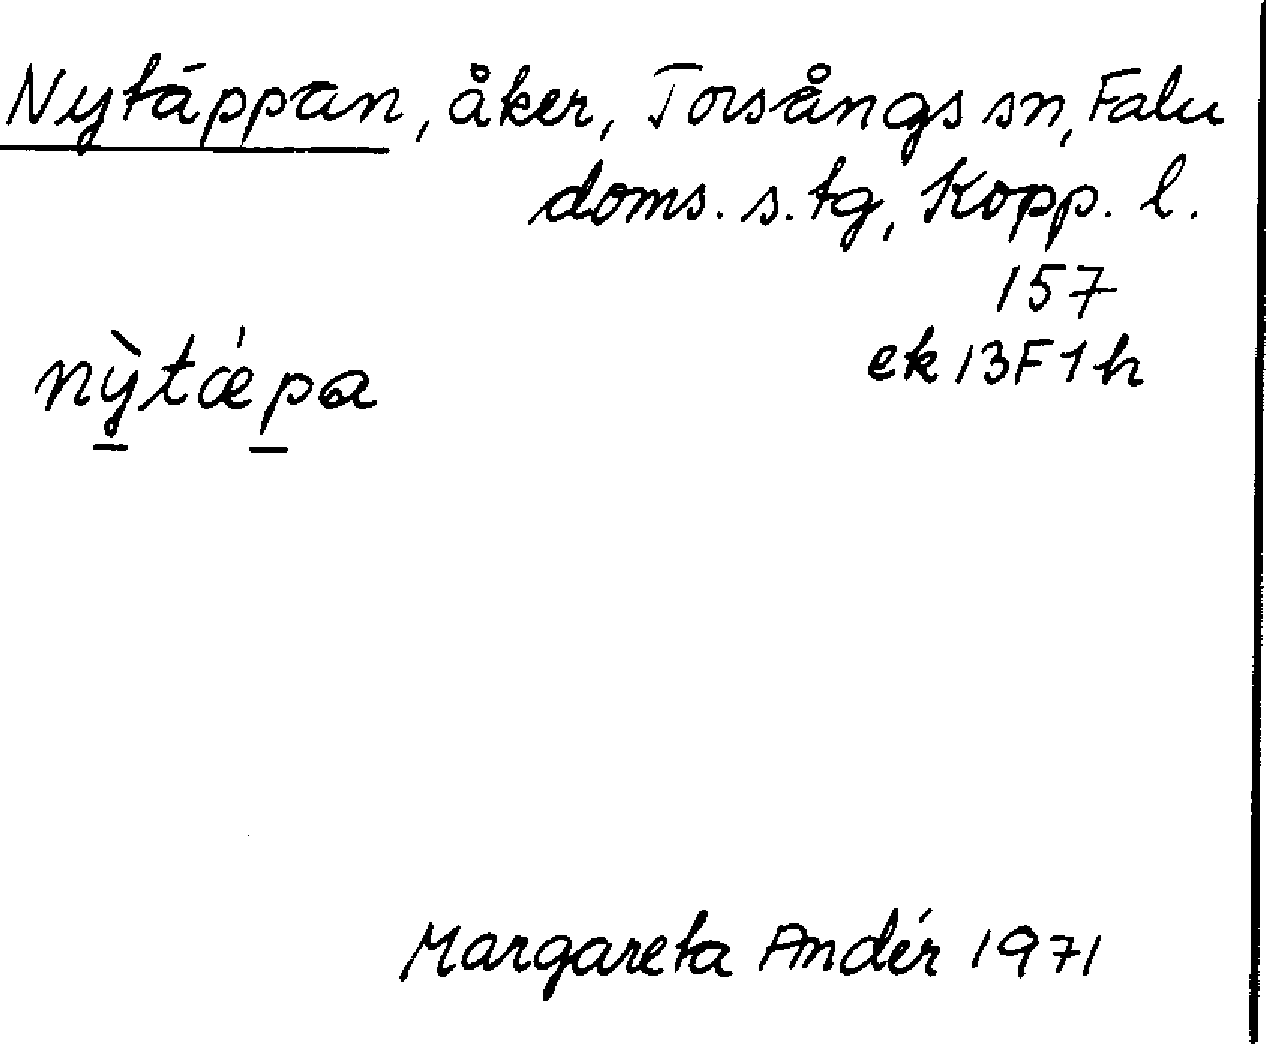 Nytäppan, åker, Torsångs sn, Falu
doms. s. tg, Kopp. l.
157
ek 13F1h
nỳtǽpa
Margareta Andér 1971